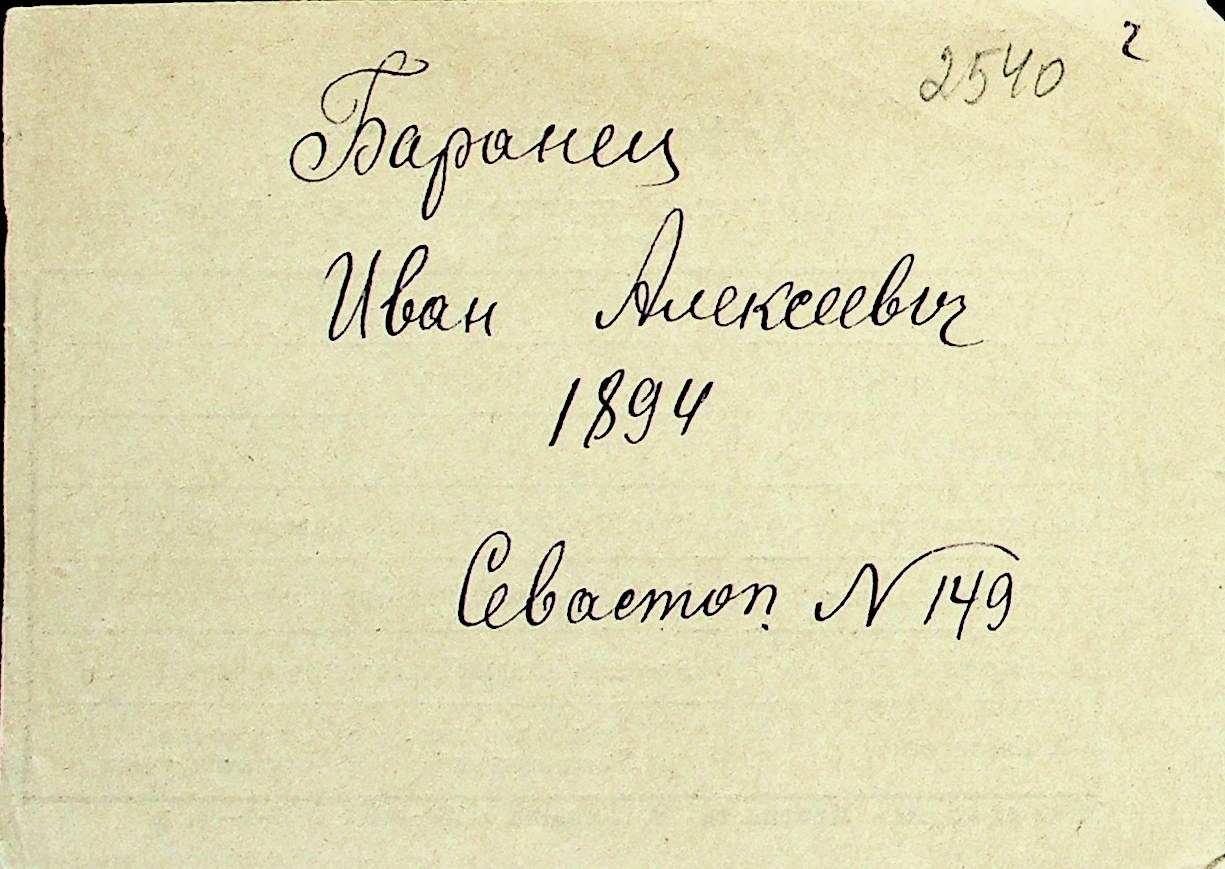 2540 2
Баранец
Иван Алексеевич
1894
Севастоп. N 149